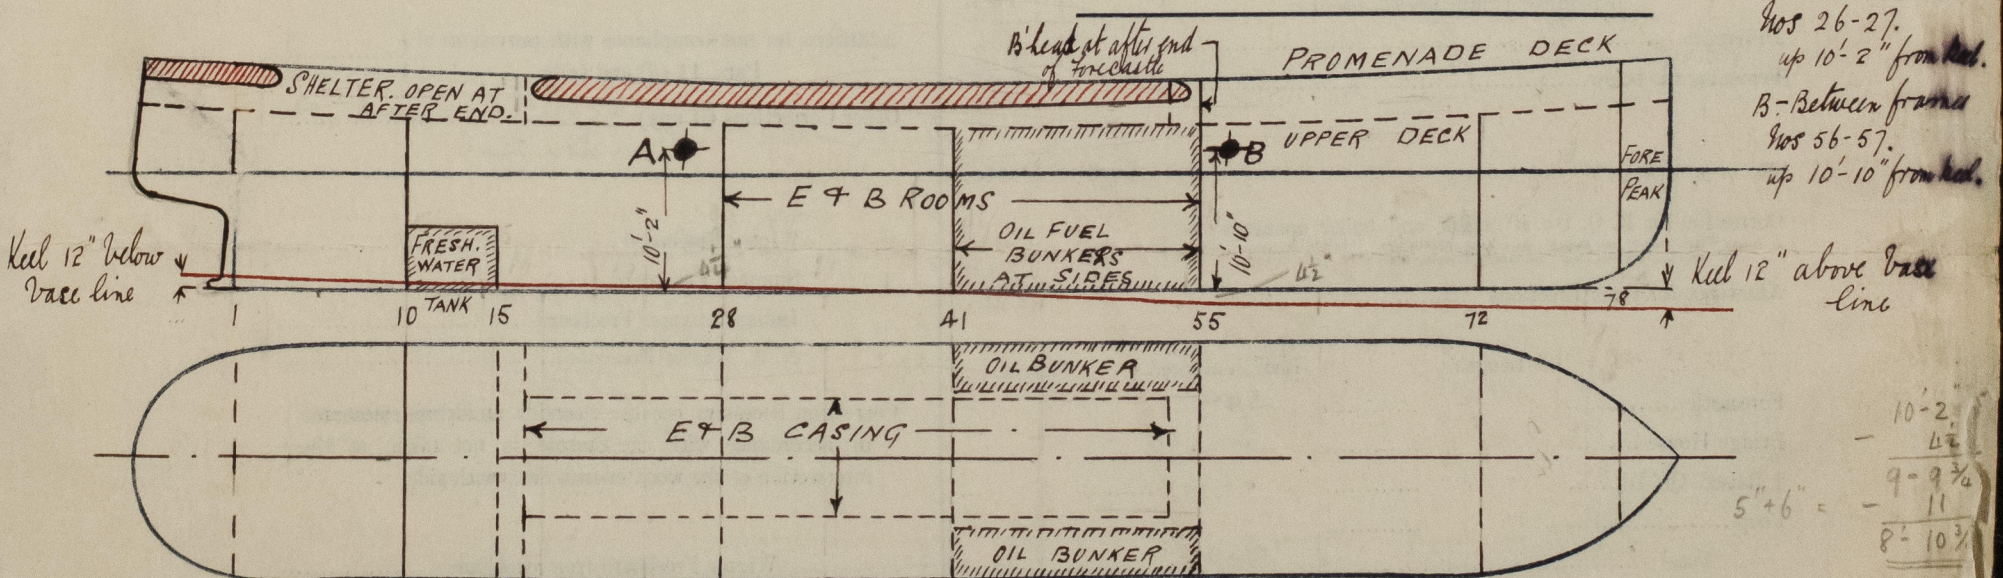 Nos 26-27.
up 10'-2" from keel.
B - Between frames
Nos 56-57.
up 10'-10" from keel.
B'head at after end
of Forecastle
PROMENADE DECK
SHELTER. OPEN AT
AFTER END.
A
B
UPPER DECK
FORE
PEAK
E & B ROOMS
10'-2"
10'-10"
FRESH.
WATER
TANK
OIL FUEL
BUNKERS
AT SIDES
4½"
Keel 12" below
base line
Keel 12" above base
line
1
10
15
28
41
55
72
78
OIL BUNKER
E & B CASING
OIL BUNKER
10'-2"
- 4¼
9 - 9¾
5" + 6" = - 11
8'- 10¾